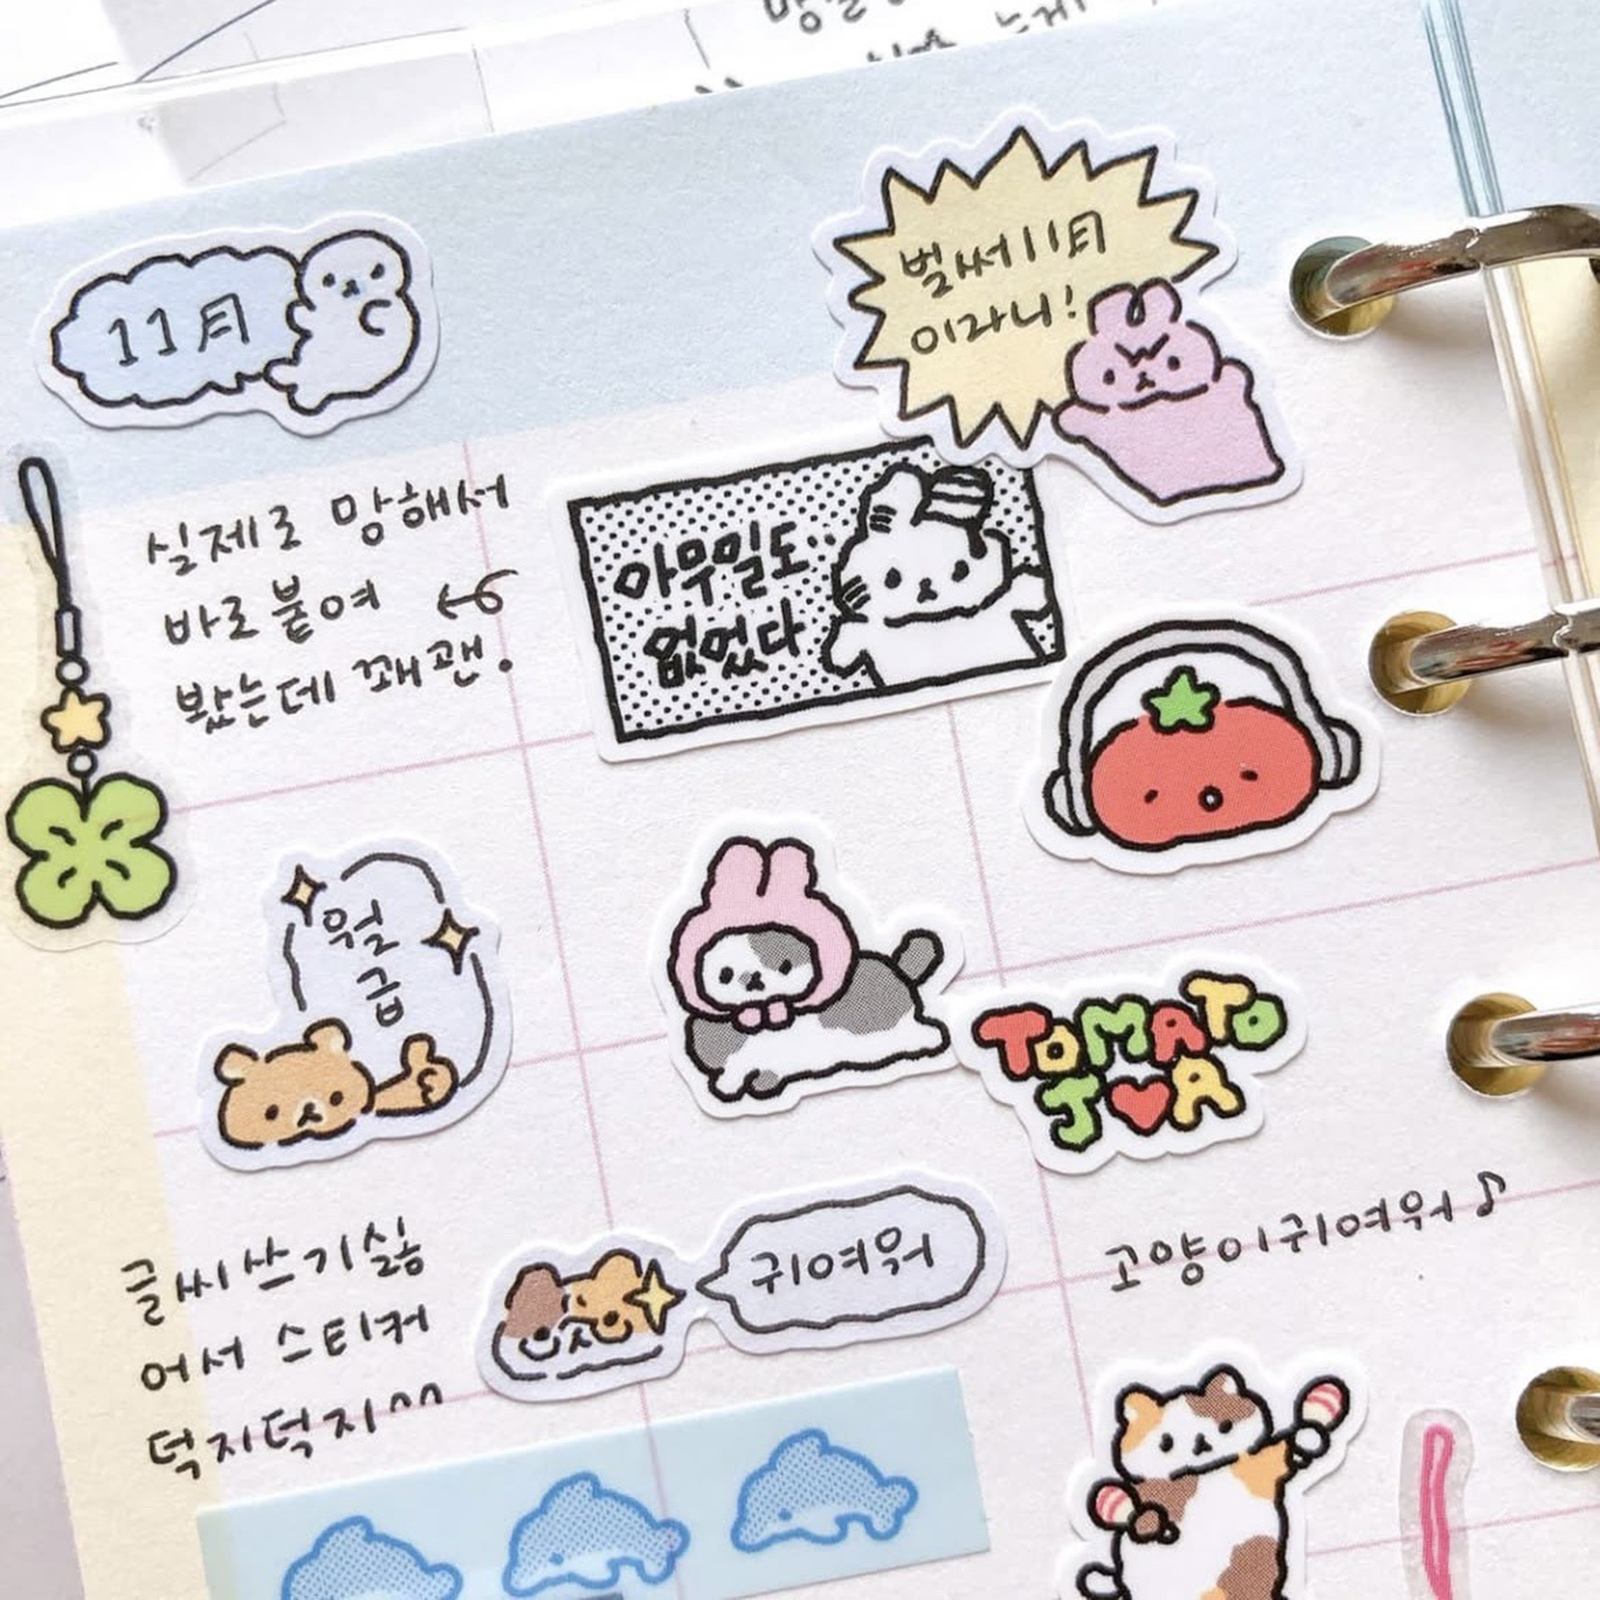 11月
벌써 11月
이라니!
실제로 망해서
바로 붙여
봤는데 꽤 괜.
아무일도..
없었다
월
급
TOMATO
J♥R
글씨쓰기싫
어서 스티커
덕지덕지^^
귀여워
고양이귀여워♪